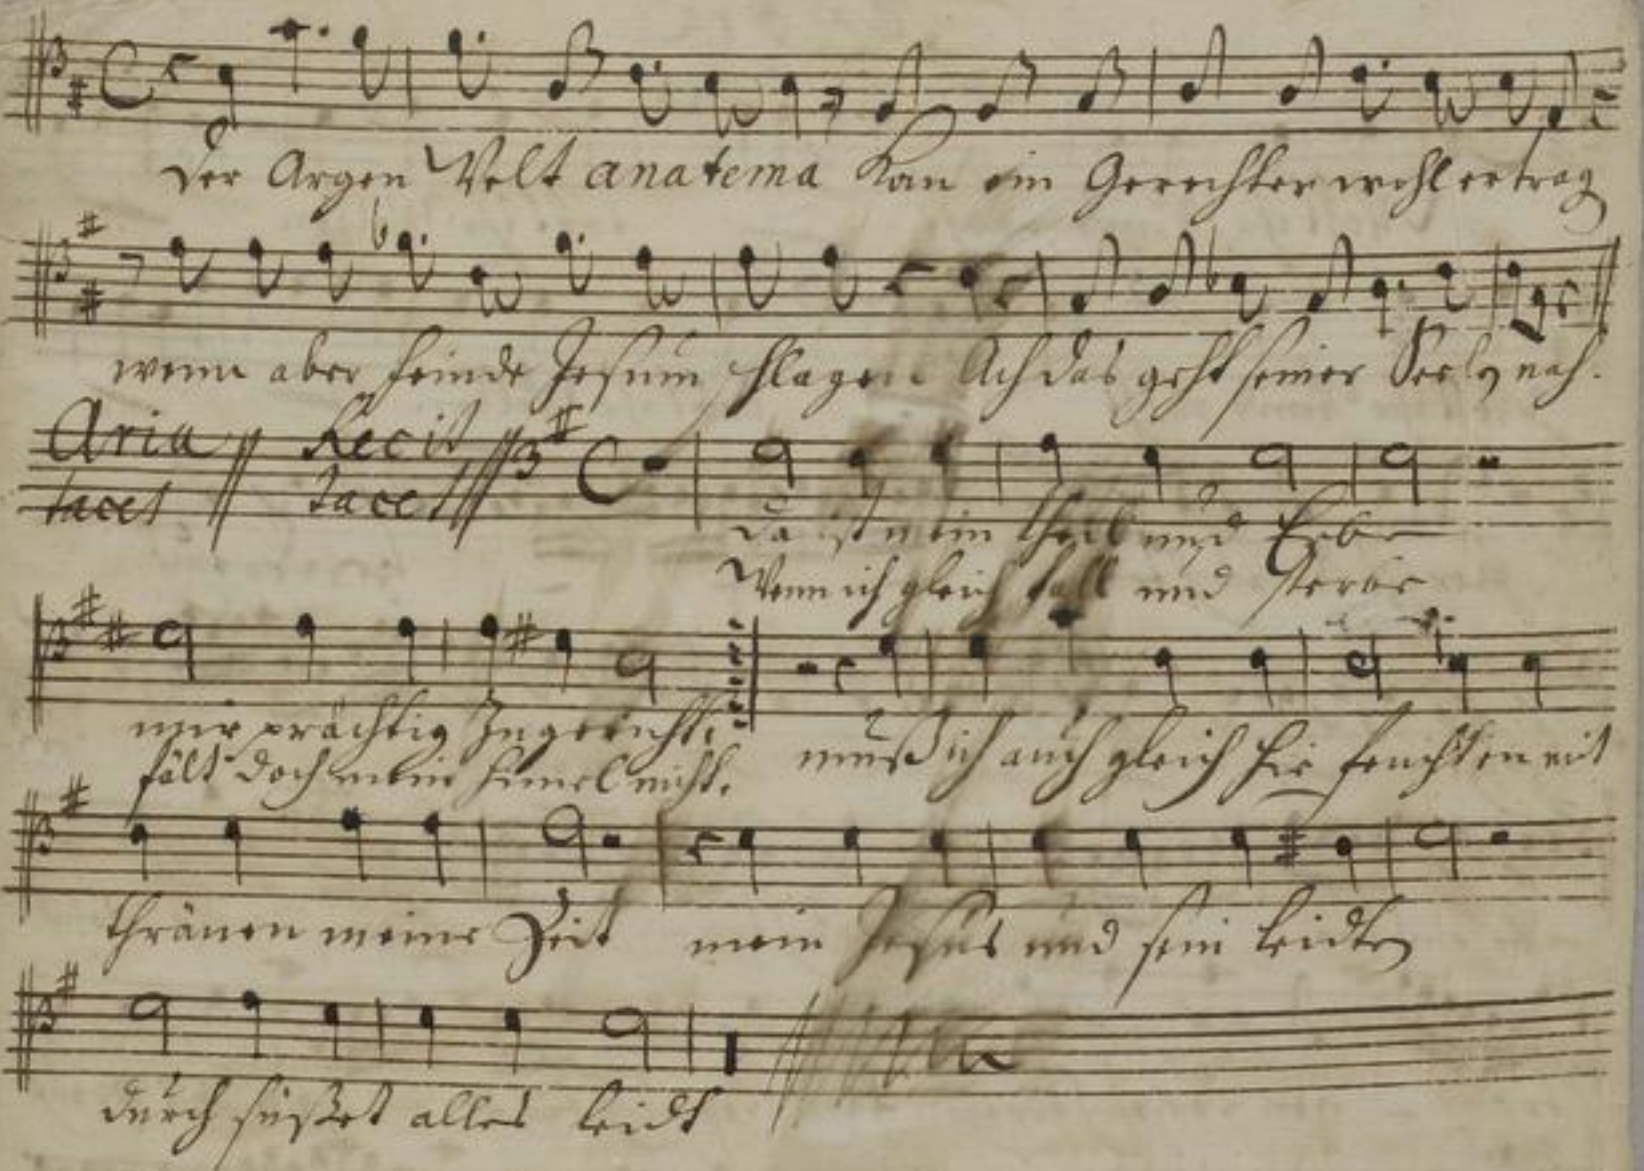 Der Argen Welt anatema Kan ein Gerechter wohl ertrag
wenn aber feinde Jesum schlagen Ach das geht seiner Seelen nah.
Aria Recit
tacet tacet
Da ist mein theil und Erbe
Wenn ich gleich fall und sterbe
mir prächtig Zugericht.
fält doch mein himel nicht.
muß ich auch gleich hie feuchten mit
thränen meine Zeit mein Jesus und sein leiden
durch süßet alles leidt